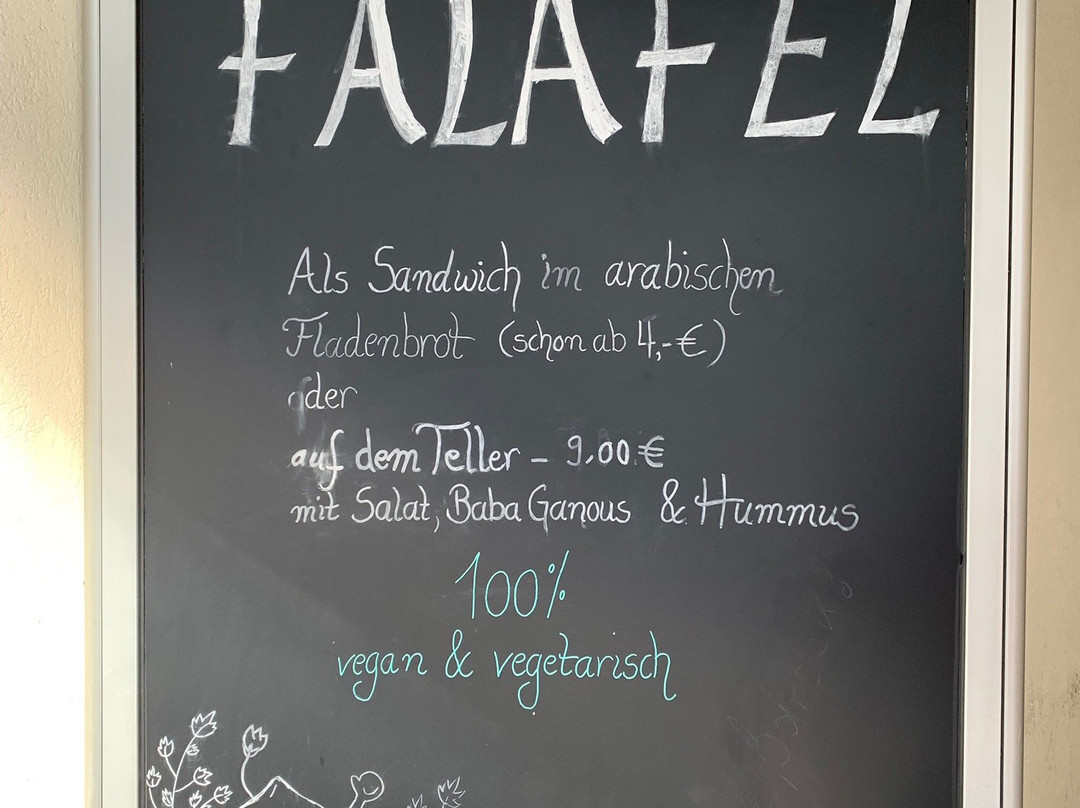 FALAFEL
Als Sandwich im arabischen
Fladenbrot (schon ab 4,-€)
oder
auf dem Teller – 9,00 €
mit Salat, Baba Ganous & Hummus
100%
vegan & vegetarisch